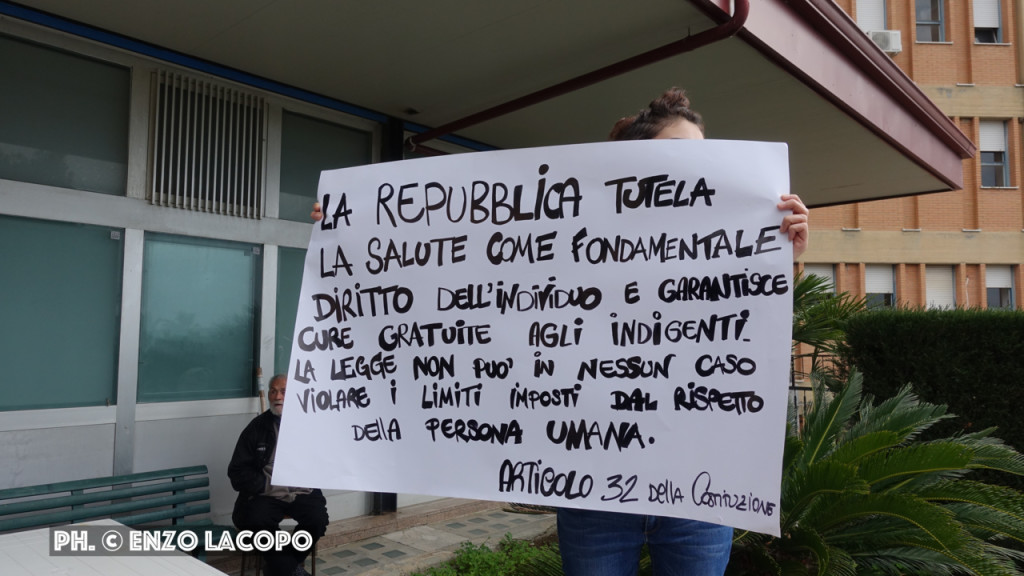 LA REPUBBLICA TUTELA
LA SALUTE COME FONDAMENTALE
DIRITTO DELL'INDIVIDUO E GARANTISCE
CURE GRATUITE AGLI INDIGENTI.
LA LEGGE NON PUO' IN NESSUN CASO
VIOLARE I LIMITI IMPOSTI DAL RISPETTO
DELLA PERSONA UMANA.
ARTICOLO 32 DELLA COSTITUZIONE
PH. © ENZO LACOPO